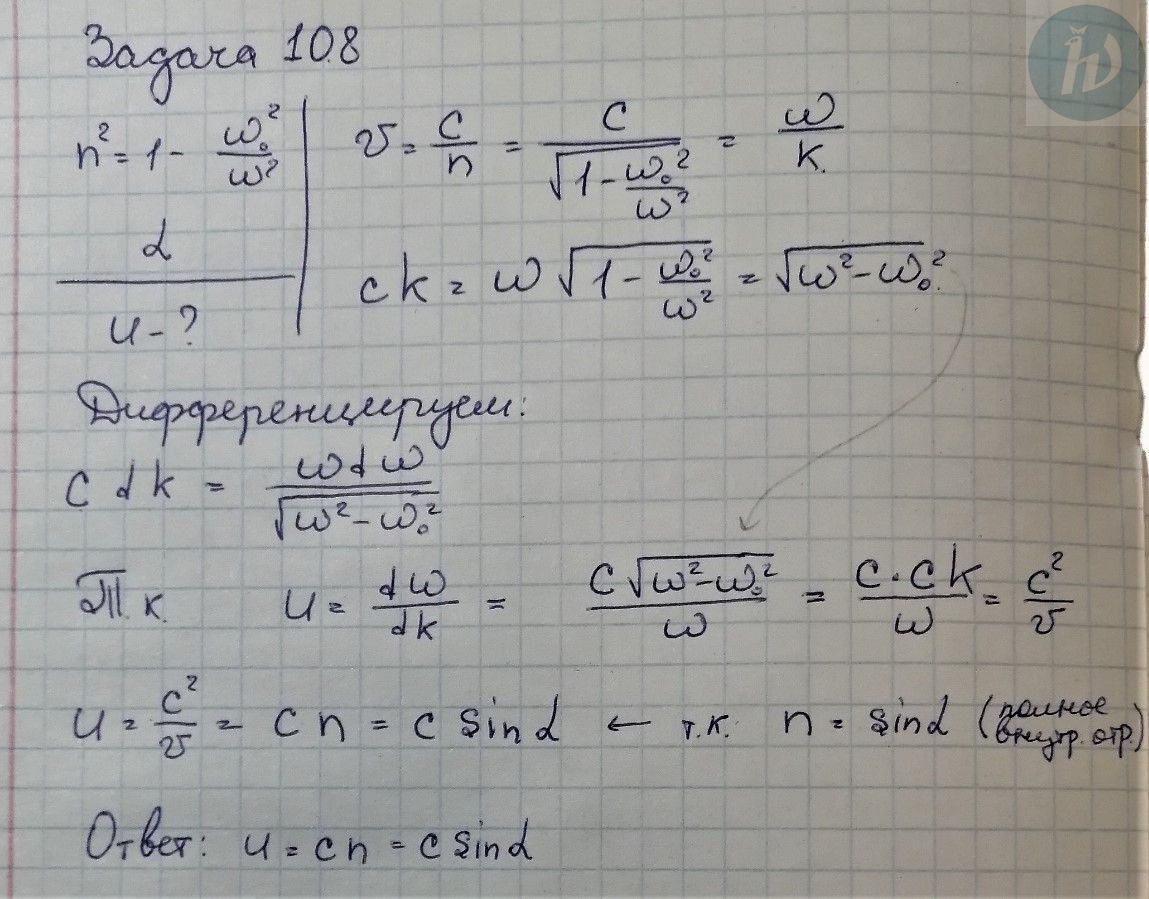 Задача 10.8
n² = 1 - ω₀²/ω²
α
u - ?
v = c/n = c/√(1 - ω₀²/ω²) = ω/k.
ck = ω√(1 - ω₀²/ω²) = √(ω² - ω₀²).
Дифференцируем:
c dk = ωdω/√(ω² - ω₀²)
Т.к. u = dω/dk = c√(ω² - ω₀²)/ω = c·ck/ω = c²/v
u = c²/v = cn = c sinα ← т.к. n = sinα (полное внутр. отр.)
Ответ: u = cn = c sinα